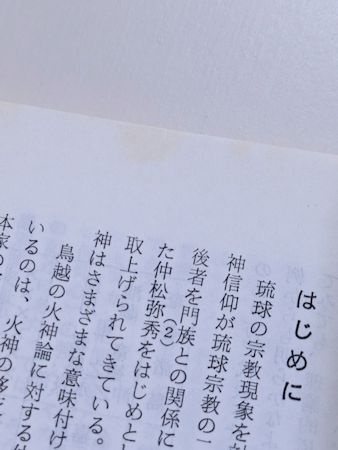 はじめに
琉球の宗教現象を
神信仰が琉球宗教の一
後者を門族との関係に
た仲松弥秀(2)をはじめと
取上げられてきている。
神はさまざまな意味付け
鳥越の火神論に対する
いるのは、火神の
本家の